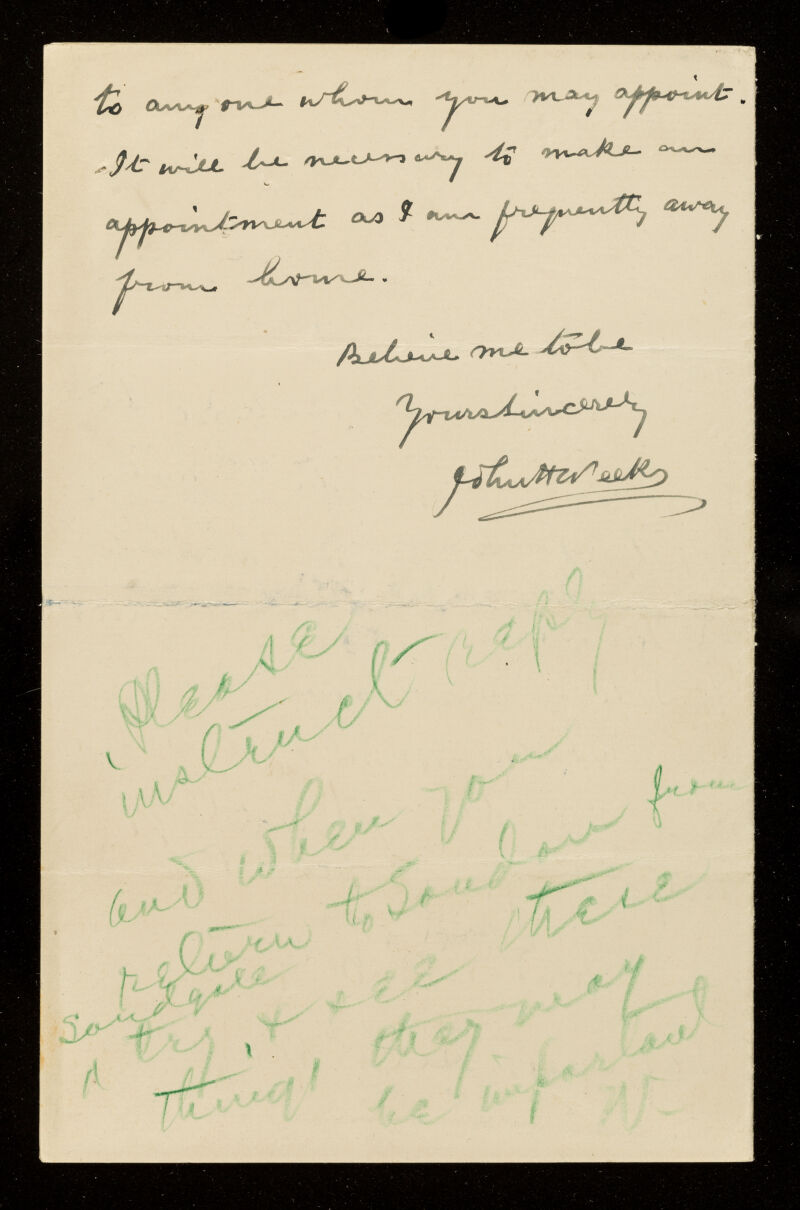 to any one whom you may appoint.
It will be necessary to make an
appointment as I am frequently away
from home.
Believe me to be
Yours sincerely
John H Weeks
Please
instruct reply
and when you
return to London from
Sandgate
try & see these
things they may
be important
W